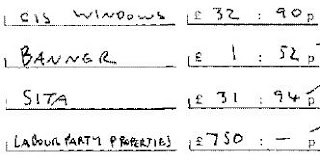 CIS WINDOWS £ 32 : 90 p
BANNER £ 1 : 52 p
SITA £ 31 : 94 p
LABOUR PARTY PROPERTIES £ 750 : — p